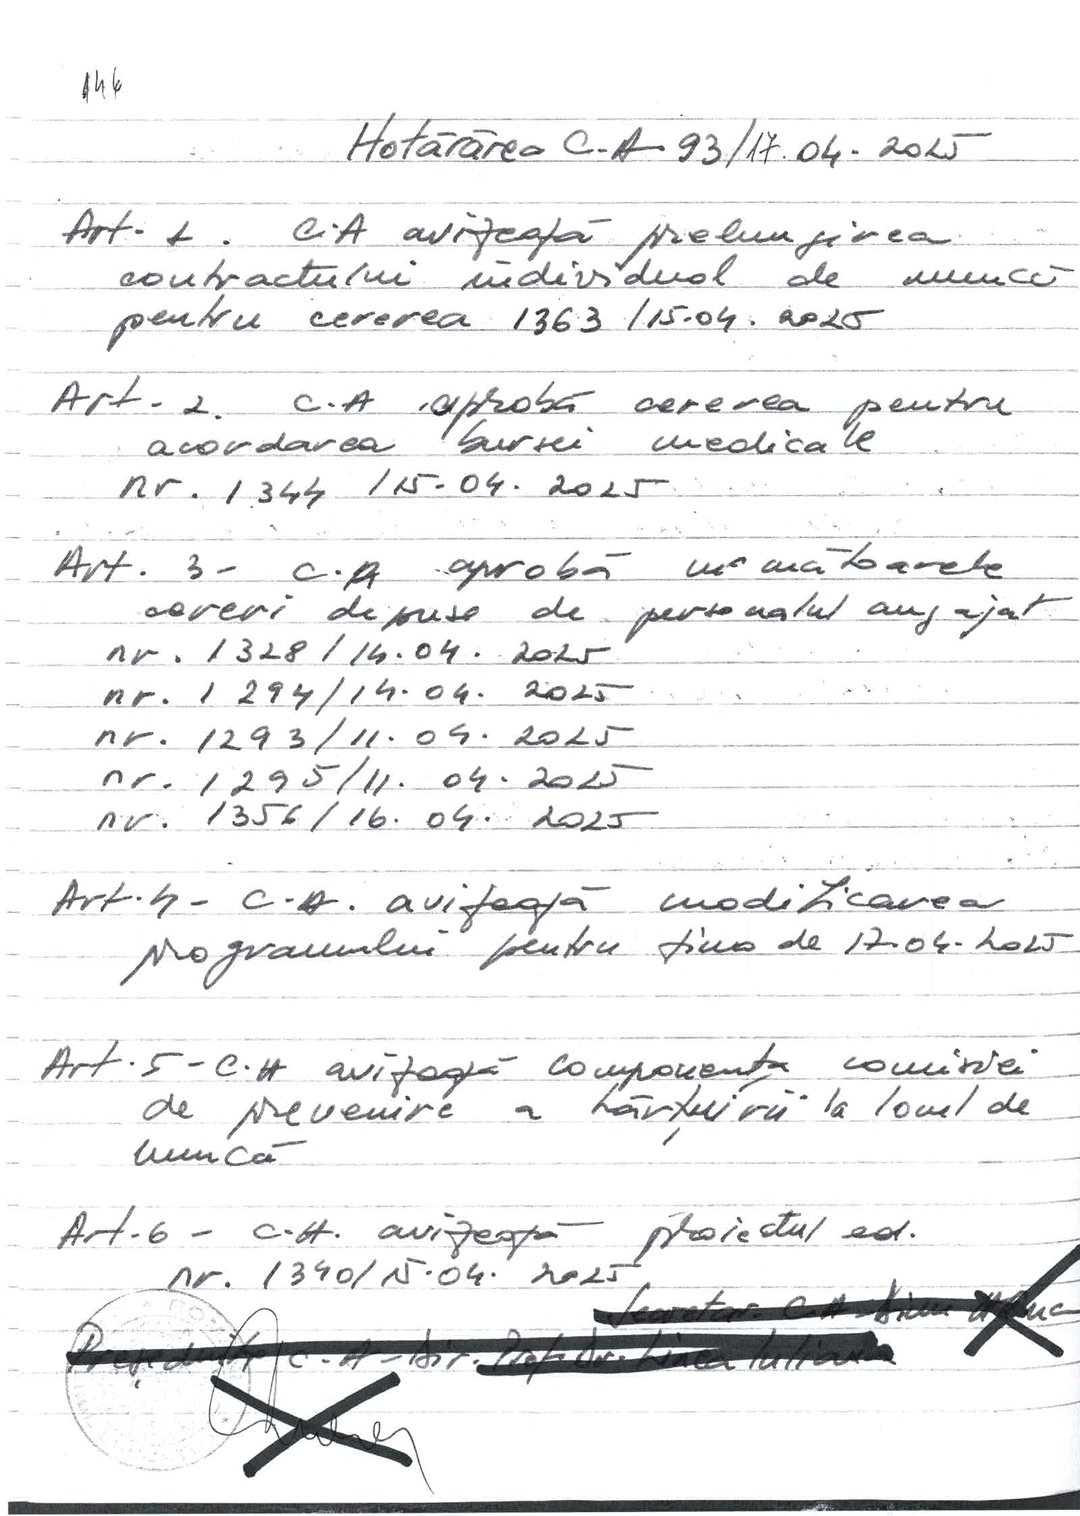 144
Hotărârea C.A 93/17.04.2025
Art. 1. C.A avizează prelungirea
contractului individual de muncă
pentru cererea 1363/15.04.2025
Art. 2. C.A aprobă cererea pentru
acordarea bursei medicale
nr. 1344/15.04.2025
Art. 3- C.A aprobă următoarele
cereri depuse de personalul angajat
nr. 1328/14.04.2025
nr. 1294/14.04.2025
nr. 1293/11.04.2025
nr. 1295/11.04.2025
nr. 1356/16.04.2025
Art. 4- C.A. avizează modificarea
programului pentru ziua de 17.04.2025
Art. 5- C.A avizează componența comisiei
de prevenire a hărțuirii la locul de
muncă
Art. 6- C.A. avizează proiectul ed.
nr. 1340/15.04.2025
Secretar C.A
Președinte C.A-Dir.